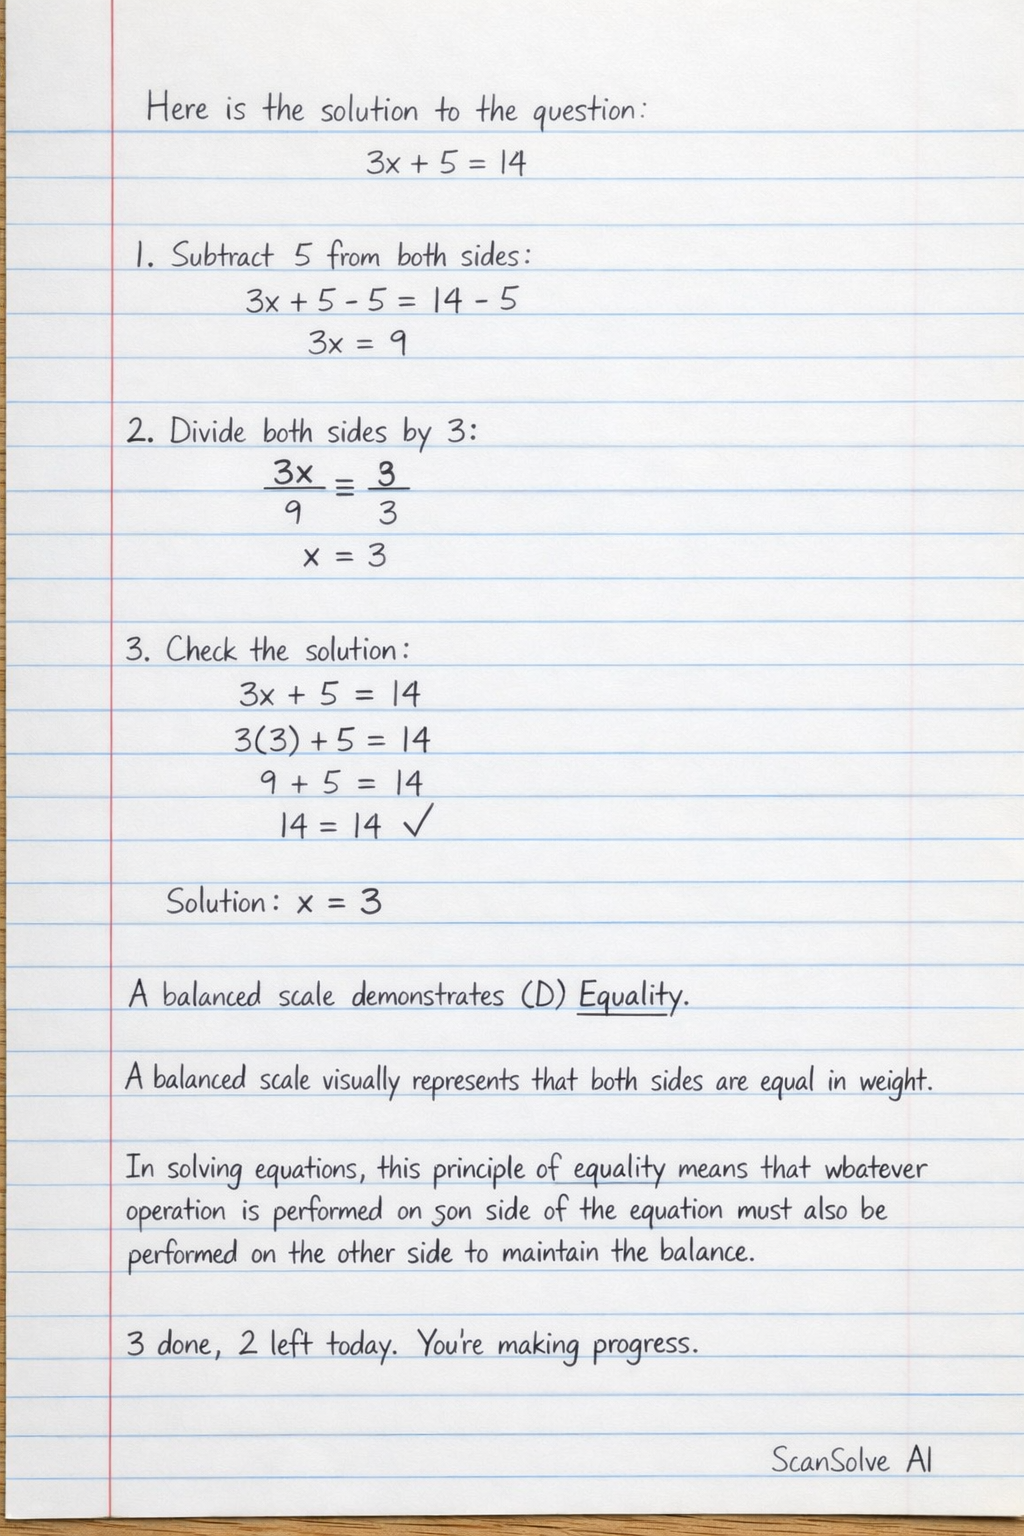 Here is the solution to the question:
3x + 5 = 14
1. Subtract 5 from both sides:
3x + 5 - 5 = 14 - 5
3x = 9
2. Divide both sides by 3:
3x/9 ≡ 3/3
x = 3
3. Check the solution:
3x + 5 = 14
3(3) + 5 = 14
9 + 5 = 14
14 = 14 ✓
Solution: x = 3
A balanced scale demonstrates (D) Equality.
A balanced scale visually represents that both sides are equal in weight.
In solving equations, this principle of equality means that wbatever
operation is performed on son side of the equation must also be
performed on the other side to maintain the balance.
3 done, 2 left today. You're making progress.
ScanSolve AI